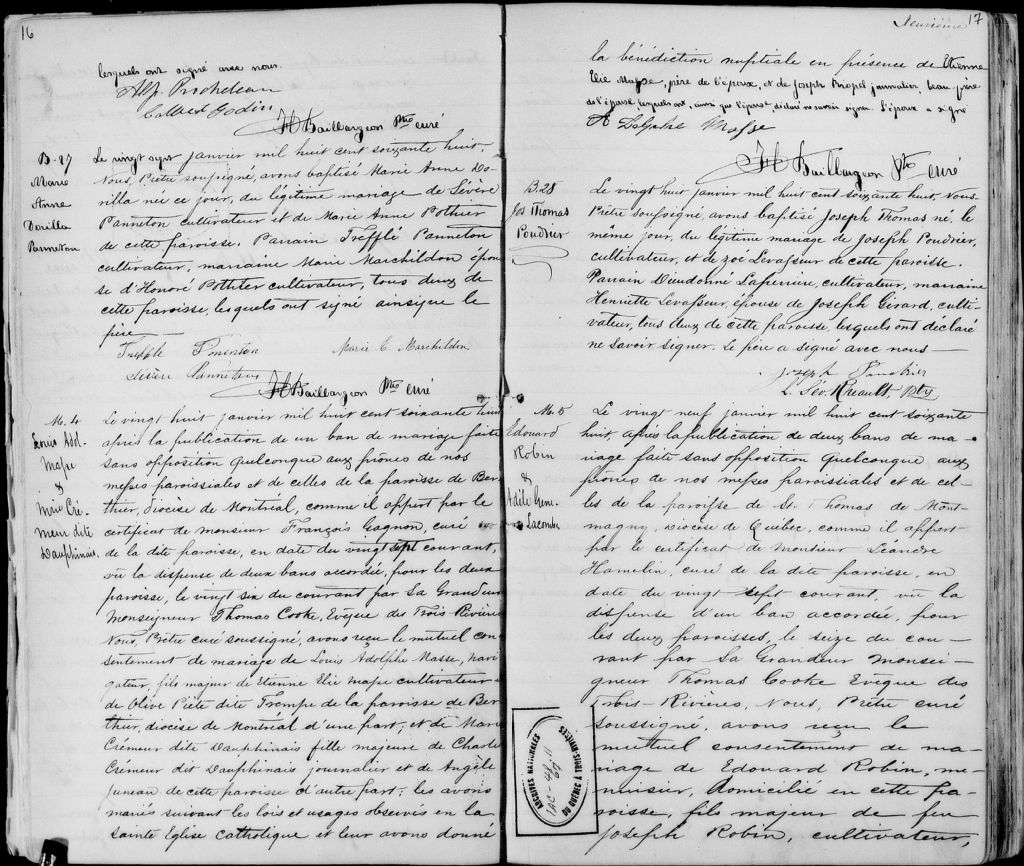 16
lesquels ont signé avec nous.
Colbert Godin
JH Baillargeon Ptre curé
B-27
Marie
Anne
Dorilla
Panneton
Le vingt sept janvier mil huit cent soixante huit,
Nous, Prêtre soussigné, avons baptisé Marie Anne Do-
rilla née ce jour, du légitime mariage de Sévère
Panneton cultivateur et de Marie Anne Pothier
de cette paroisse. Parrain Trefflé Panneton
cultivateur, marraine Marie Marchildon épou-
se d'Honoré Pothier cultivateur, tous deux de
cette paroisse, lesquels ont signé ainsi que le
père
Trefflé Panneton Marie C. Marchildon
Sévère Panneton
JH Baillargeon Ptre curé
M. 4
Louis Adol.
Masse
&
Marie Cré-
meur dite
Dauphinais.
Le vingt huit janvier mil huit cent soixante huit
après la publication de un ban de mariage faite
sans opposition quelconque aux prônes de nos
messes paroissiales et de celles de la paroisse de Ber
thier, diocèse de Montréal, comme il appert par le
certificat de monsieur François Gagnon, curé
de la dite paroisse, en date du vingt sept courant,
vû la dispense de deux bans accordée, pour les deux
paroisse, le vingt six du courant par Sa Grandeur
Monseigneur Thomas Cooke, Evêque des Trois Rivières
Nous, Prêtre curé soussigné, avons reçu le mutuel con
sentement de mariage de Louis Adolphe Masse, navi
gateur, fils majeur de Etienne Elie Masse cultivateur
de Olive Piette dite Trempe de la paroisse de Ber
thier, diocèse de Montréal d'une part, et de Marie
Crémeur dite Dauphinais fille majeure de Charle
Crémeur dit Dauphinais journalier et de Angèle
Juneau de cette paroisse d'autre part; les avons
mariés suivant les lois et usages observés en la
sainte Eglise catholique et leur avons donné
Deuxième 17
la bénédiction nuptiale en présence de Etienne
Elie Masse, père de l'époux, et de Joseph journalier, beau père
de l'épouse, lesquels ont, ainsi que l'épouse, déclaré ne savoir signer. L'époux a signé
A Dolphe Masse
JH Baillargeon Ptre curé
B.28
Jos Thomas
Poudrier
Le vingt huit janvier mil huit cent soixante huit, Nous
Prêtre soussigné, avons baptisé Joseph Thomas né le
même jour, du légitime mariage de Joseph Poudrier,
cultivateur, et de Zoé Levasseur de cette paroisse.
Parrain Dieudonné Laperrière, cultivateur, marraine
Henriette Levasseur, épouse de Joseph Girard, culti-
vateur, tous deux de cette paroisse, lesquels ont déclaré
ne savoir signer. Le père a signé avec nous
Joseph Poudrier
L. Sév. Rheault, Ptre
M. 5
Edouard
Robin
&
Adèle
Lacombe
Le vingt neuf janvier mil huit cent soixante
huit, après la publication de deux bans de ma-
riage faite sans opposition quelconque aux
prônes de nos messes paroissiales et de cel-
les de la paroisse de St. Thomas de Mont-
magny, diocèse de Québec, comme il appert
par le certificat de Monsieur Léandre
Hamelin, curé de la dite paroisse, en
date du vingt sept courant, vû la
dispense d'un ban accordée, pour
les deux paroisses, le seize du cou-
rant par Sa Grandeur Monsei-
gneur Thomas Cooke Evêque des
Trois-Rivières, Nous, Prêtre curé
soussigné, avons reçu le
mutuel consentement de ma-
riage de Edouard Robin, me-
nuisier, domicilié en cette pa-
roisse, fils majeur de feu
Joseph Robin, cultivateur,
ARCHIVES NATIONALES
DU QUÉBEC À TROIS-RIVIÈRES